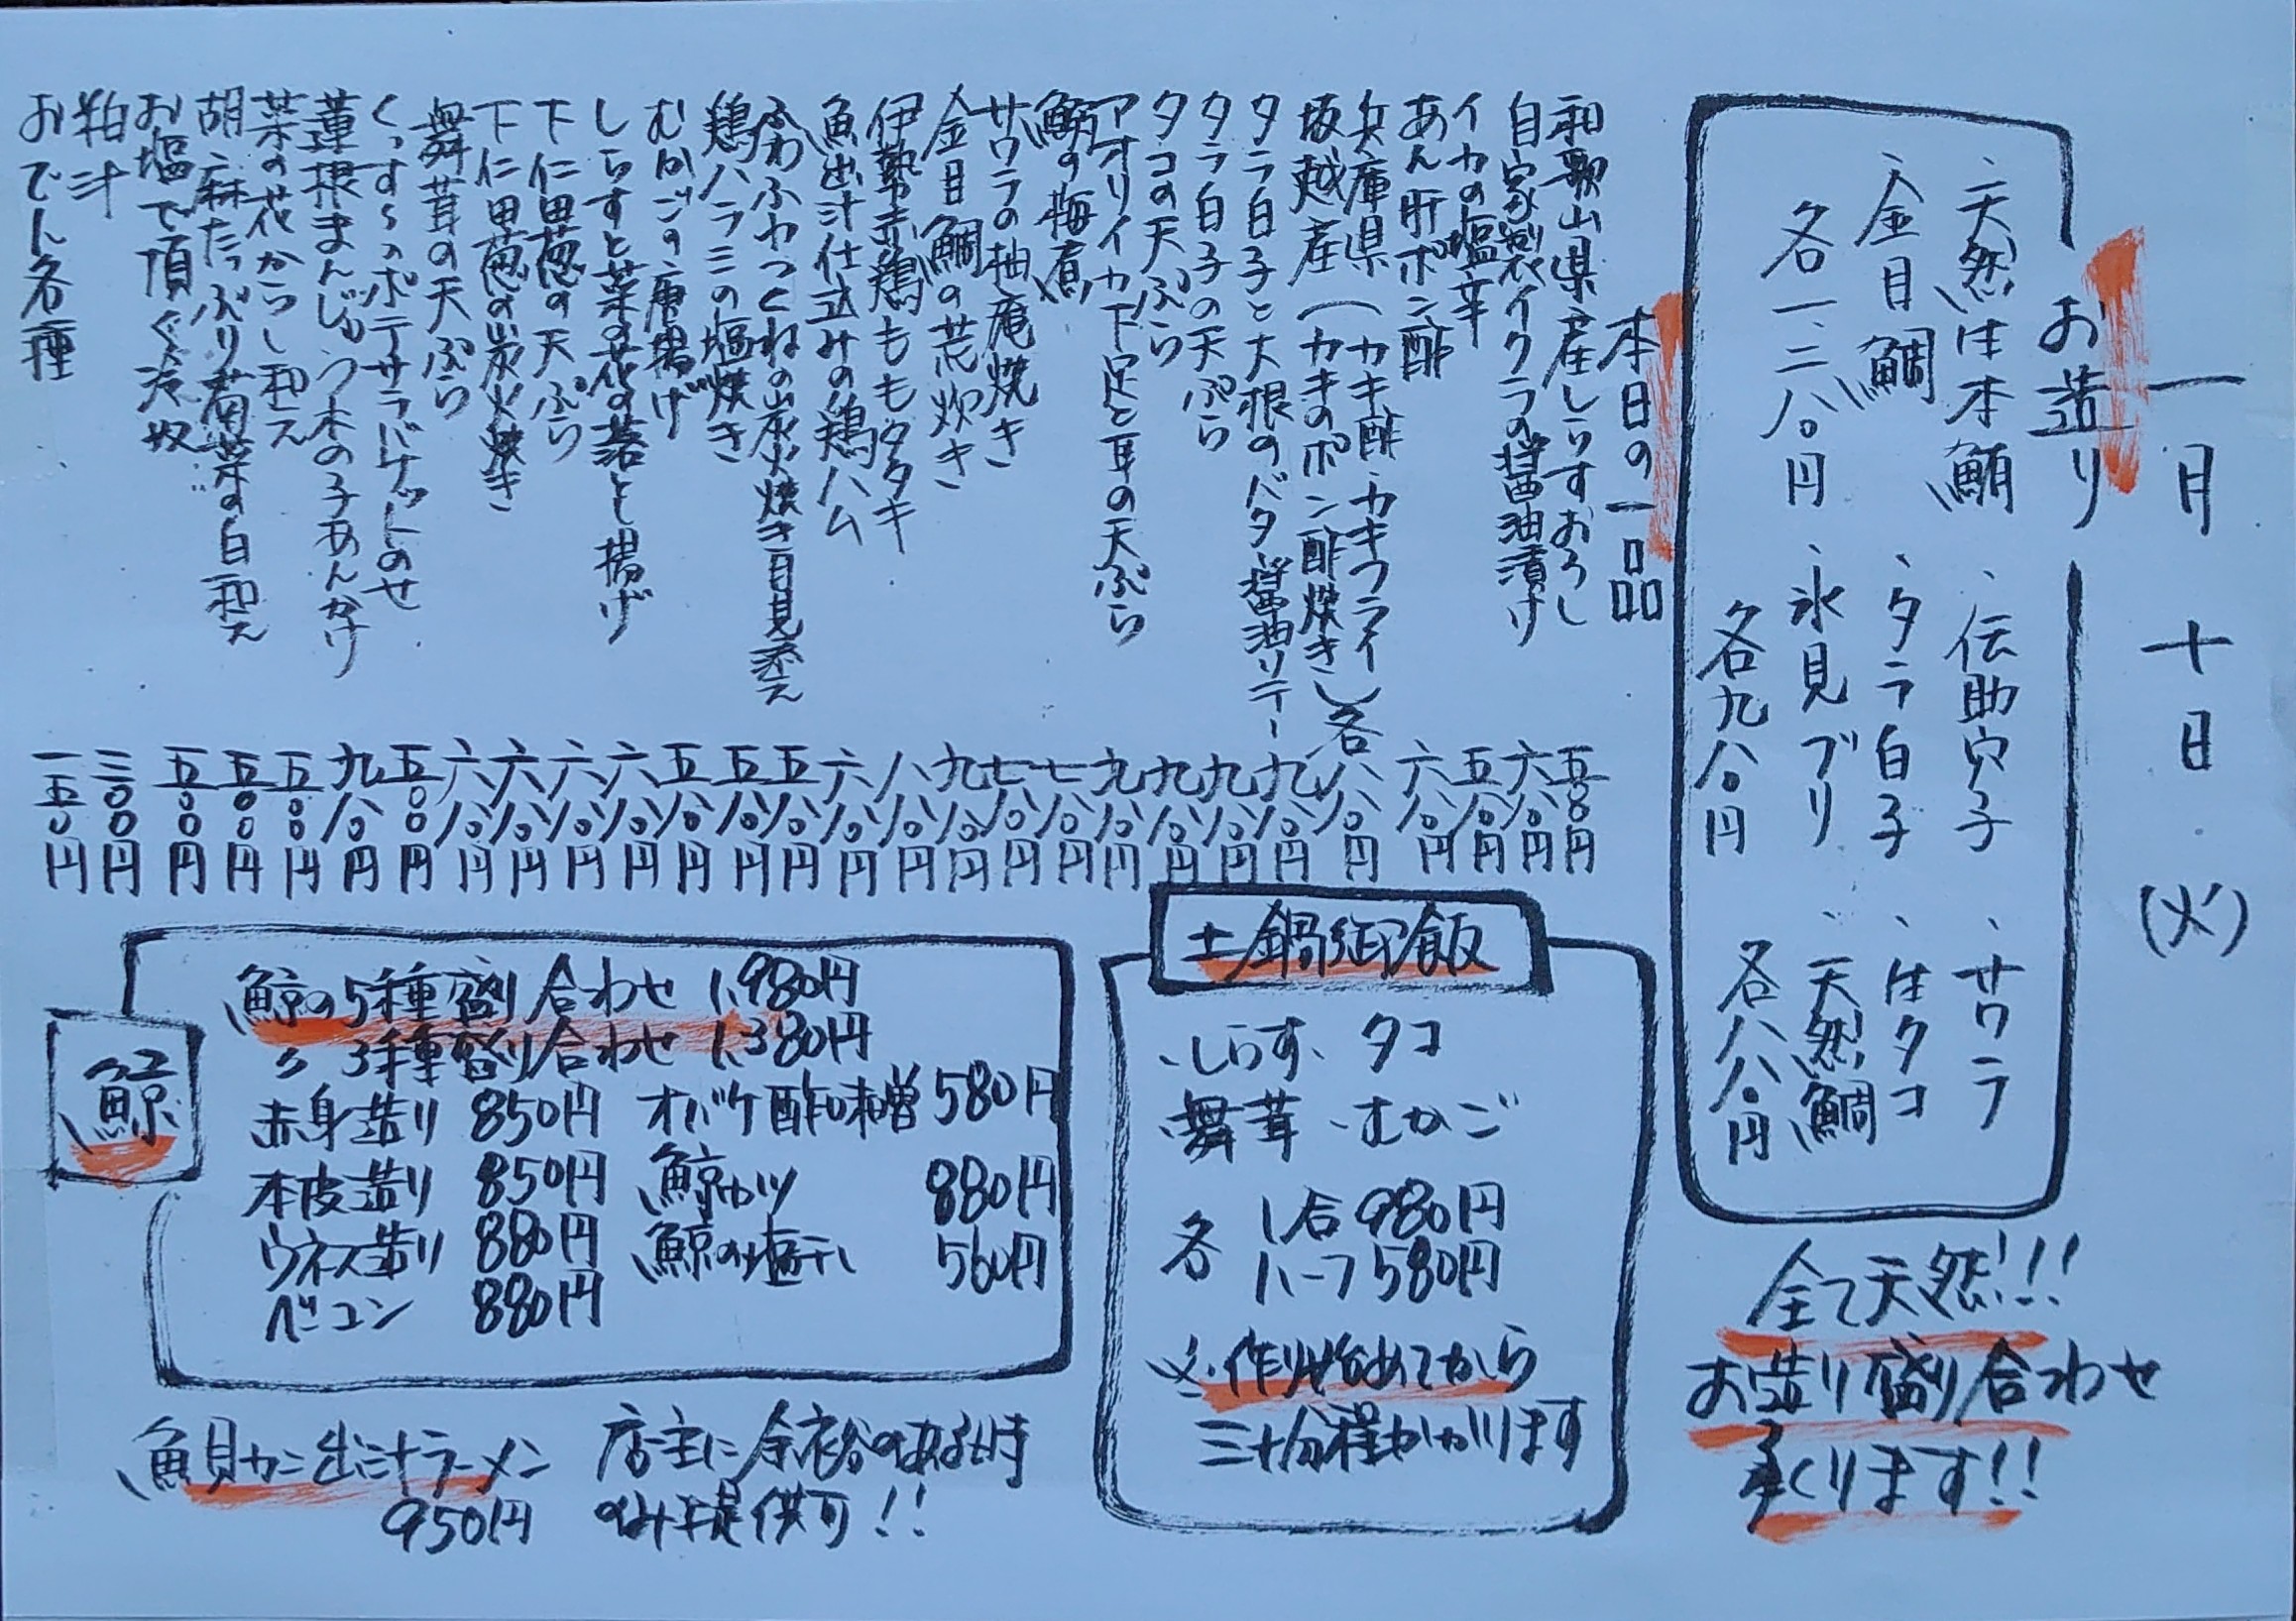 一月十日(火)
お造り
、天然生本鮪
、金目鯛
各一、三八〇円
、伝助穴子
、タラ白子
、氷見ブリ
各九八〇円
、サワラ
、生タコ
、天然鯛
各八八〇円
全て天然!!!
お造り盛り合わせ
承ります!!
本日の一品
和歌山県産しらすおろし 五〇〇円
自家製イクラの醤油漬け 六八〇円
イカの塩辛 五八〇円
あん肝ポン酢 六八〇円
兵庫県(カキ酢・カキフライ
坂越産(カキのポン酢焼き)各 八八〇円
タラ白子と大根のバター醤油ソテー 九八〇円
タラ白子の天ぷら 九八〇円
タコの天ぷら 九八〇円
アオリイカ下足と耳の天ぷら 九八〇円
鰯の梅煮 七八〇円
サワラの柚庵焼き 七八〇円
金目鯛の荒炊き 九八〇円
伊勢赤鶏ももタタキ 八八〇円
魚出汁仕込みの鶏ハム 六八〇円
ふわふわつくねの炭火焼き目見添え 五八〇円
鶏ハラミの塩焼き 五八〇円
むかごの唐揚げ 五八〇円
しらすと菜の花の落とし揚げ 六八〇円
下仁田葱の天ぷら 六八〇円
下仁田葱の炭火焼き 六八〇円
舞茸の天ぷら 六八〇円
くっすらポテサラバケットのせ 五〇〇円
蓮根まんじゅう木の子あんかけ 九八〇円
菜の花からし和え 五〇〇円
胡麻たっぷり菊菜の白和え 五〇〇円
お塩で頂く冷奴 五〇〇円
粕汁 三〇〇円
おでん各種 一五〇円
土鍋御飯
、しらす、タコ
、舞茸、むかご
各 1合 980円
ハーフ 580円
※作り始めてから
三十分程かかります
鯨
鯨の5種盛り合わせ 1,980円
〃 3種盛り合わせ 1,380円
赤身造り 850円 オバケ酢味噌 580円
本皮造り 850円 鯨カツ 880円
ウネス造り 880円 鯨の塩干し 560円
ベーコン 880円
魚貝カニ出汁ラーメン
950円
店主に余裕のある時
のみ提供可!!